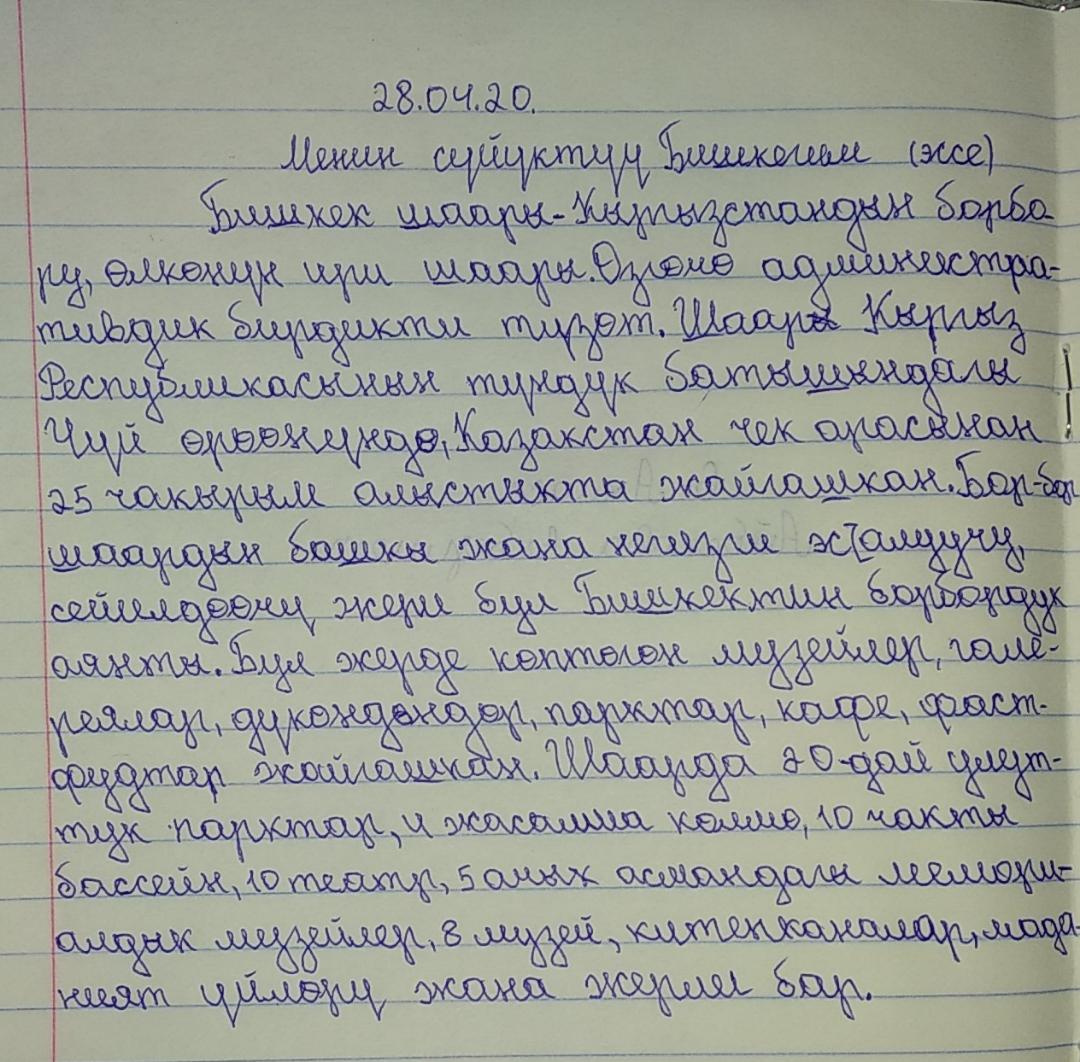 28.04.20.
Менин сүйүктүү Бишкегим (эссе)
Бишкек шаары-Кыргызстандын борбо-
ру, өлкөнүн ири шаары. Өзгөчө администра-
тивдик бирдикти түзөт. Шаары Кыргыз
Республикасынын түндүк батышындагы
Чүй өрөөнүндө, Казакстан чек арасынан
25 чакырым алыстыкта жайгашкан. Бор-бор
шаардын башкы жана негизги эс алдуучу,
сейилдөөчү жери бул Бишкектин борбордук
аянты. Бул жерде көптөгөн музейлер, гале-
реялар, дүкөндөндөр, парктар, кафе, фаст-
фудтар жайгашкан. Шаарда 20-дай улут-
тук парктар, 4 жасалма көлмө, 10 чакты
бассейн, 10 театр, 5 ачык асмандагы мемори-
алдык музейлер, 8 музей, китепканалар, мада-
ният үйлөрү жана жерлик бар.